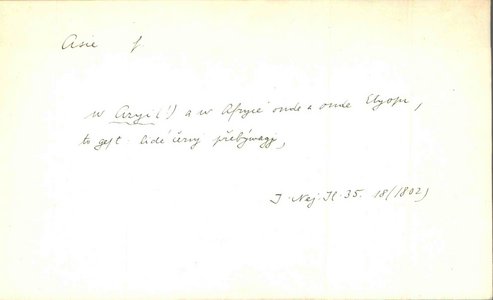 Asie f
w Azyi (!) a w Afryce onde a onde Etyopi,
to gest lidé černj přebýwagj,
J. Nej. It. 35. 18 (1802)